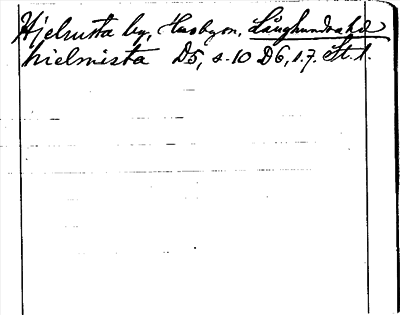 Hjelmsta by, Husbysn, Långhundra hd
hielmista D5, s. 10 D6, s. 7. St. l.